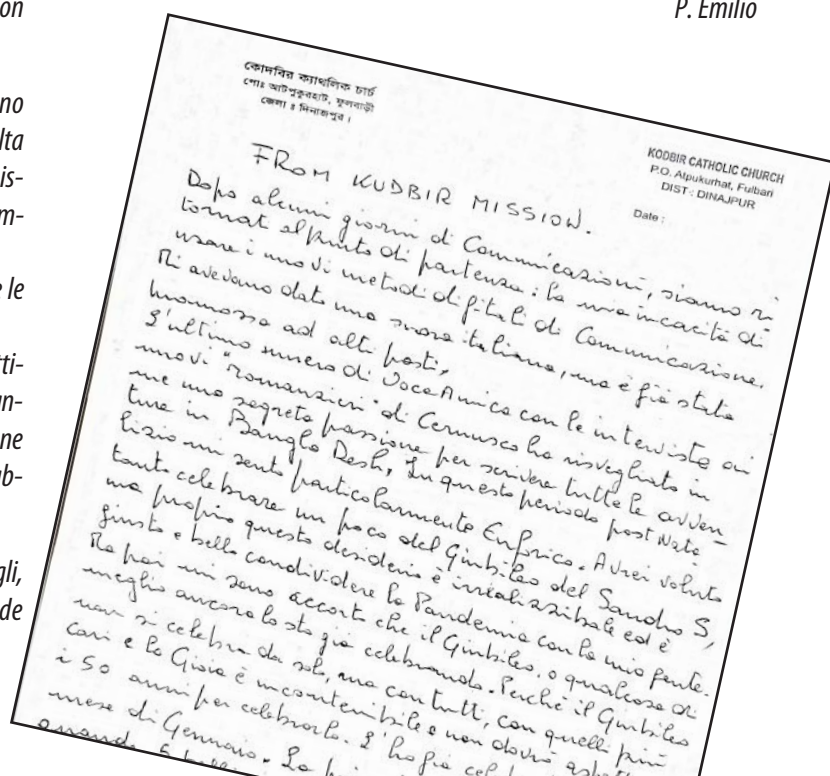 on
P. Emilio
no
lta
is-
m-
e le
tti-
n-
ne
b-
gli,
de
কোদবির ক্যাথলিক চার্চ
পোঃ আটপুকুরহাট, ফুলবাড়ী
জেলা ঃ দিনাজপুর।
KODBIR CATHOLIC CHURCH
P.O. Atpukurhat, Fulbari
DIST : DINAJPUR
Date :
FROM KUDBIR MISSION.
Dopo alcuni giorni di Comunicazioni, siamo ri
tornati al punto di partenza: la mia incacità di
usare i nuovi metodi digitali di Comunicazione.
Mi avevano dato una suora italiana, ma è già stata
promossa ad alti posti,
L'ultimo numero di Voce Amica con le interviste ai
nuovi "romanzieri" di Cernusco ha risvegliato in
me una segreta passione per scrivere tutte le avven
ture in Bangla Desh, In questo periodo post Nata
lizio mi sento particolarmente Euforico. Avrei voluto
tanto celebrare un poco del Giubileo del Sandro S,
ma proprio questo desiderio è irrealizzibale ed è
giusto e bello condividere la Pandemia con la mia gente.
Ma poi mi sono accorto che il Giubileo, o qualcosa di
meglio ancora lo sto già celebrando. Perché il Giubileo
non si celebra da solo, ma con tutti, con quelli più
cari e la Gioia è incontenibile e non dovrò
i 50 anni per celebrarlo. L'ho già
mese di Gennaio. La
quando